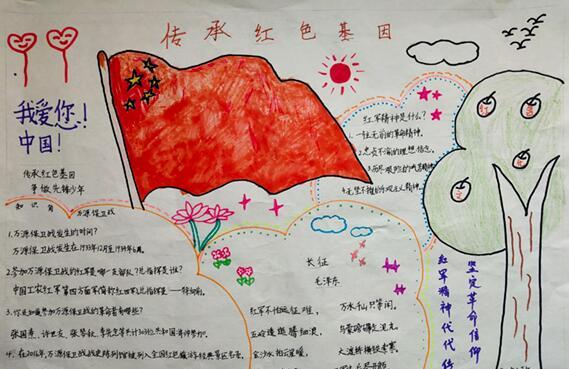 传承红色基因
我爱你!
中国!
传承红色基因
争做先锋少年
知识角
万源保卫战
1.万源保卫战发生的时间?
万源保卫战发生在1933年12月至1934年6月。
2.参加万源保卫战的红军是哪一支部队?总指挥是谁?
中国工农红军第四方面军(简称红四军),总指挥——徐向前。
3.你知道参加万源保卫战的革命者有哪些?
红军精神是什么?
1.一往无前的革命精神。
2.忠贞不渝的理想信念。
长征
毛泽东
红军不怕远征难,
万水千山只等闲。
五岭逶迤腾细浪,
乌蒙磅礴走泥丸。
金沙水拍云崖暖,
大渡桥横铁索寒。
坚定革命信仰
红军精神代代传